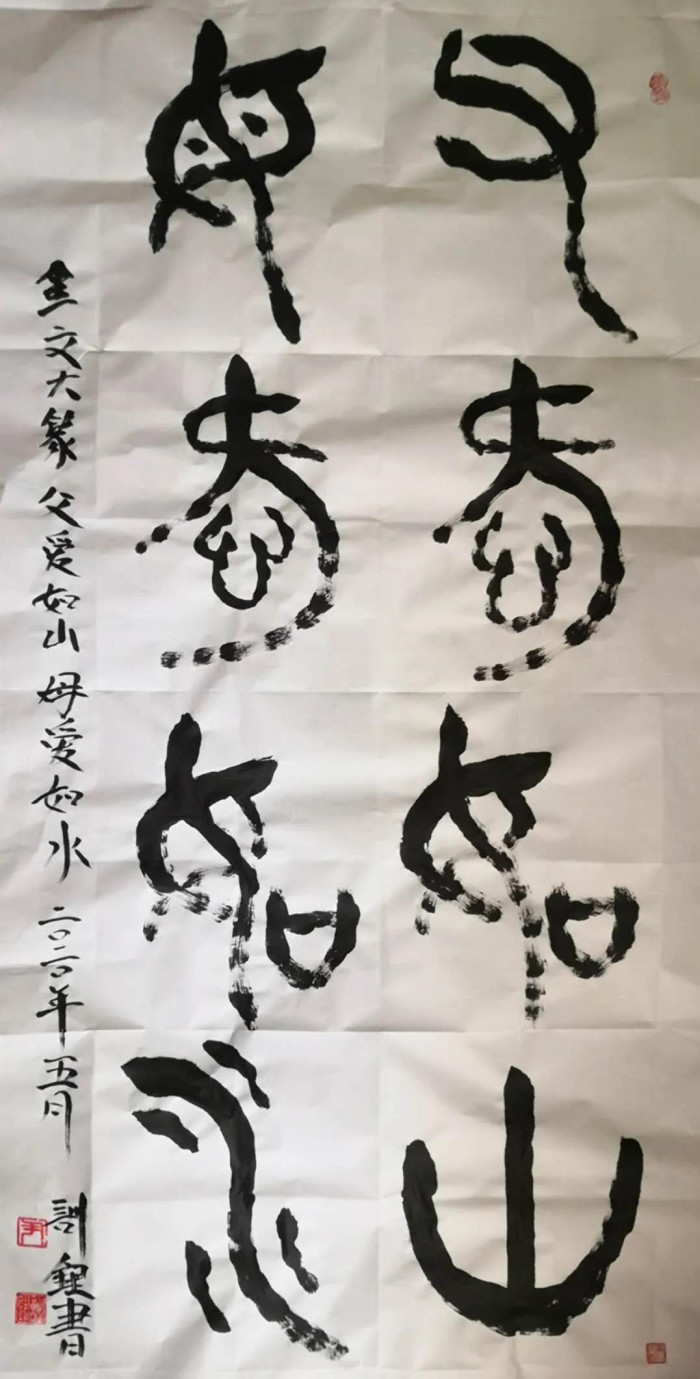 父爱如山
母爱如水
金文大篆 父爱如山 母爱如水 二〇二〇年五月 訓鉦書